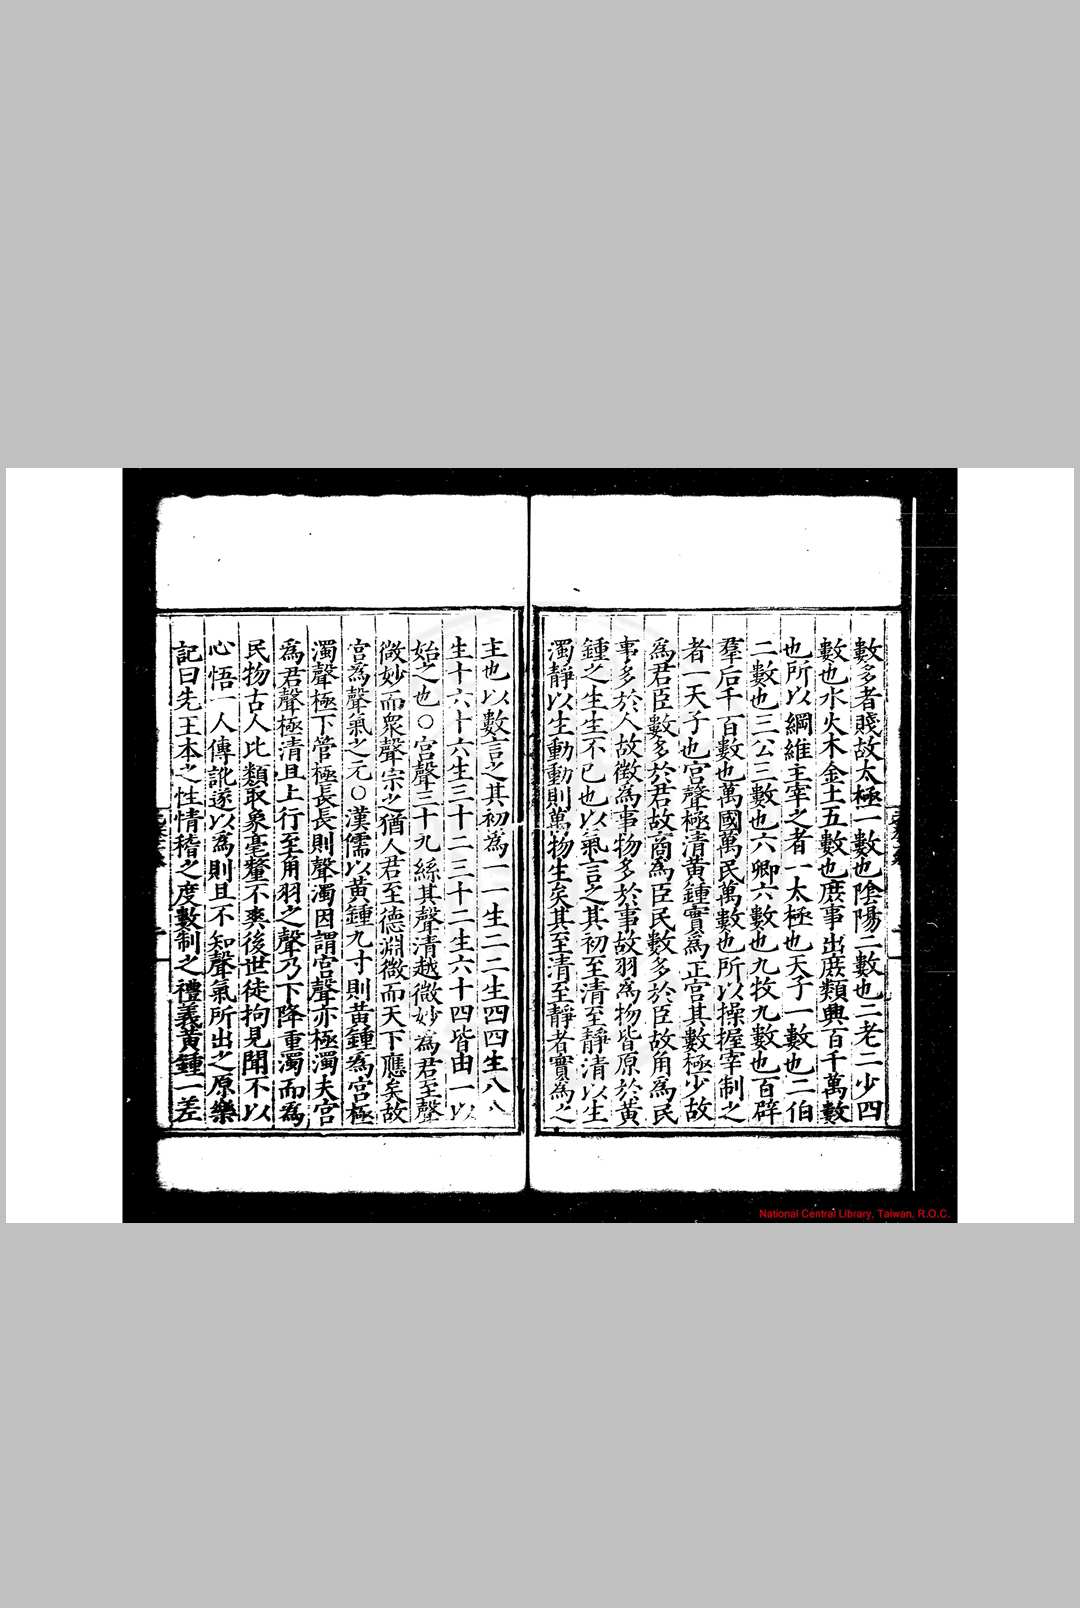 數多者賤故太極一數也陰陽二數也二老二少四
數也水火木金土五數也庶事出庶類興百千萬數
也所以綱維主宰之者一太極也天子一數也二伯
二數也三公三數也六卿六數也九牧九數也百辟
羣后千百數也萬國萬民萬數也所以操握宰制之
者一天子也宮聲極清黃鍾實爲正宮其數極少故
爲君臣數多於君故商爲臣民數多於臣故角爲民
事多於人故徵為事物多於事故羽爲物皆原於黃
鍾之生生不已也以氣言之其初至清至靜清以生
濁靜以生動動則萬物生矣其至清至靜者實爲之
主也以數言之其初爲一一生二二生四四生八八
生十六十六生三十二三十二生六十四皆由一以
始之也○宮聲三十九絲其聲清越微妙爲君至聲
微妙而衆聲宗之猶人君至德淵微而天下應矣故
宮爲聲氣之元○漢儒以黃鍾九寸則黃鍾爲宮極
濁聲極下管極長長則聲濁因謂宮聲亦極濁夫宮
爲君聲極清且上行至角羽之聲乃下降重濁而爲
民物古人比類取象毫釐不爽後世徒拘見聞不以
心悟一人傳訛遂以爲則且不知聲氣所出之原樂
記曰先王本之性情稽之度數制之禮義黃鍾一差
National Central Library, Taiwan, R.O.C.